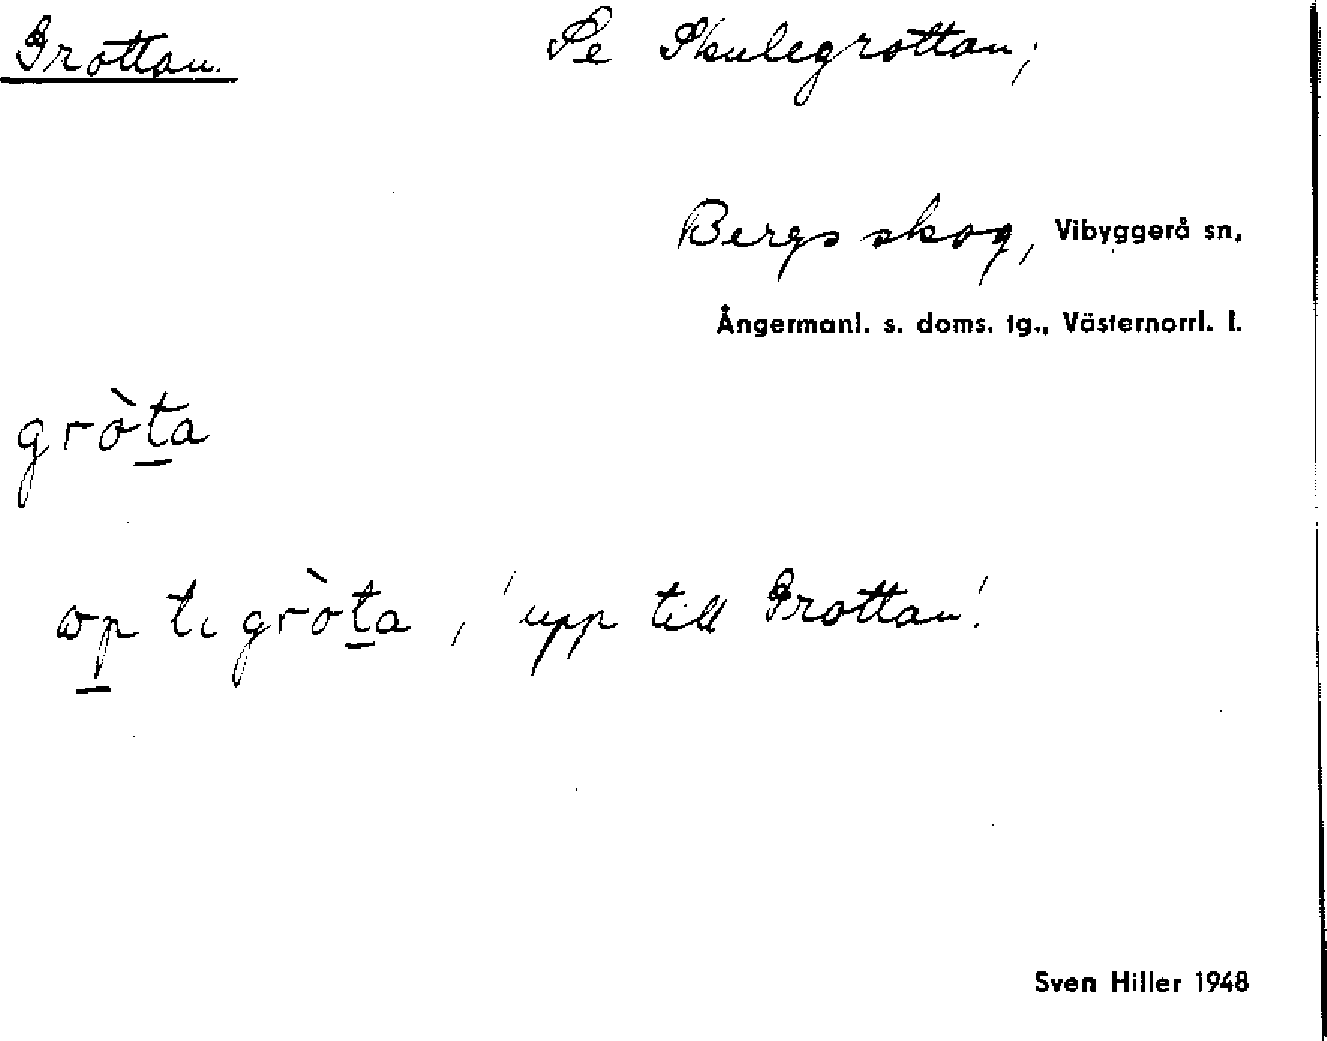 Grottan. Se Skulegrottan;
Bergs skog, Vibyggerå sn,
Ångermanl. s. doms. tg., Västernorrl. l.
gròt̲a
ωp̲ tɩ gròt̲a, 'upp till Grottan'.
Sven Hiller 1948